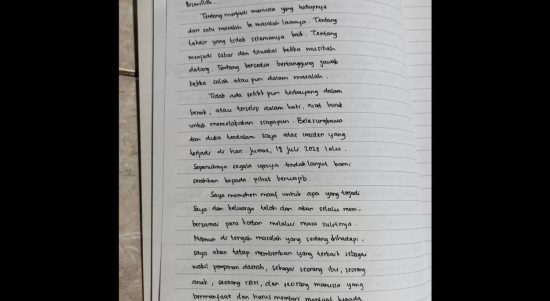 Bismillah...
Tentang menjadi manusia yang hidupnya
dari satu masalah ke masalah lainnya. Tentang
takdir yang tidak selamanya baik. Tentang
menjadi sabar dan tawakal ketika musibah
datang. Tentang bersedia bertanggung jawab
ketika salah ataupun dalam masalah.
Tidak ada setitik pun terbayang dalam
benak, atau terselip dalam hati, niat buruk
untuk mencelakakan siapapun. Belasungkawa
dan duka terdalam saya atas insiden yang
terjadi di hari Jumat, 18 Juli 2025 lalu.
Sepenuhnya segala upaya tindak lanjut kami
serahkan kepada pihak berwajib.
Saya memohon maaf untuk apa yang terjadi
Saya dan keluarga telah dan akan selalu mem-
bersamai para korban melalui masa sulitnya.
Namun di tengah masalah yang sedang dihadapi,
saya akan tetap memberikan yang terbaik sebagai
wakil pimpinan daerah, sebagai seorang ibu, seorang
anak, seorang istri, dan seorang manusia yang
bermanfaat dan harus memberi manfaat kepada